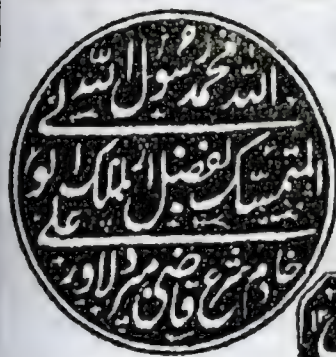 الله محمد رسول الله
المتمسک بفضل الملک الو لی
علی
خادم شرع قاضی میر دلاور